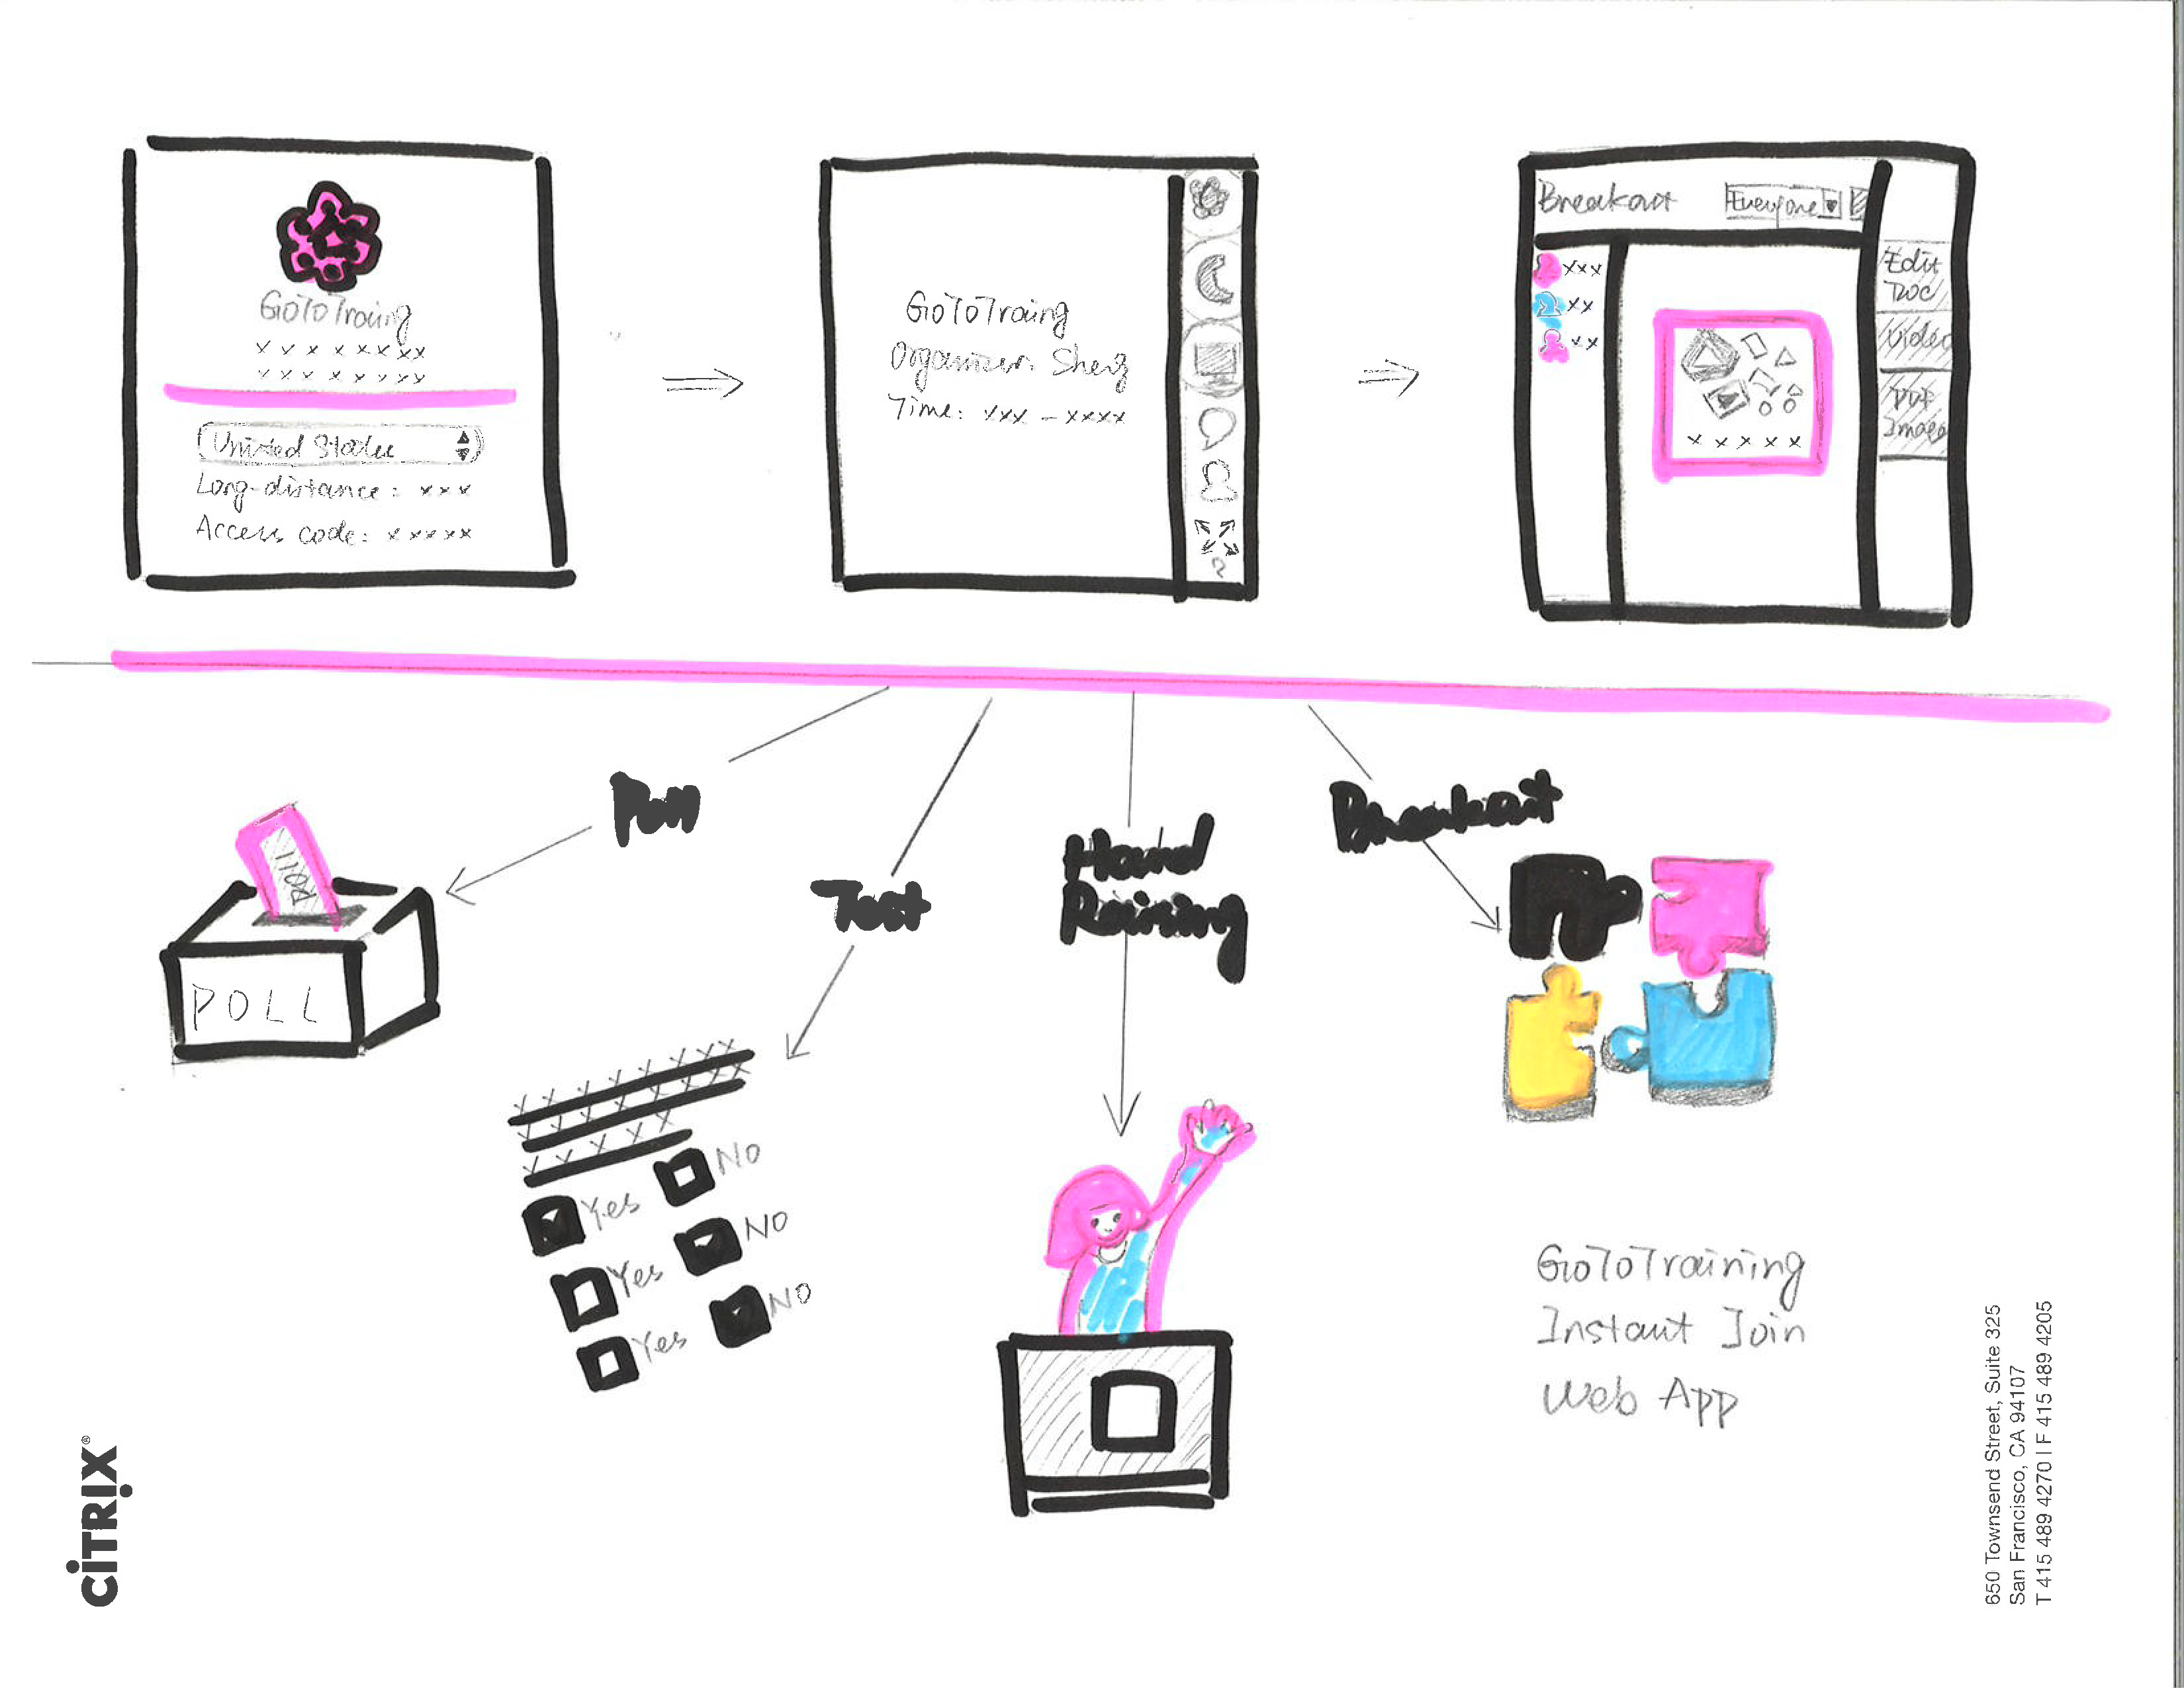 GoToTraing
x x x x x x x x
x x x x x x x x
United States
Long-distance: xxx
Access code: xxxxx
GoToTraing
Organizer: Sherg
Time: xxx - xxxx
Breakout Everyone
xxx
xx
xx
x x x x x
Edit
Doc
Video
Image
Poll
Test
Hand
Raising
Breakout
POLL
POLL
Yes NO
Yes NO
Yes NO
GoToTraining
Instant Join
Web App
CITRIX®
650 Townsend Street, Suite 325
San Francisco, CA 94107
T 415 489 4270 | F 415 489 4205